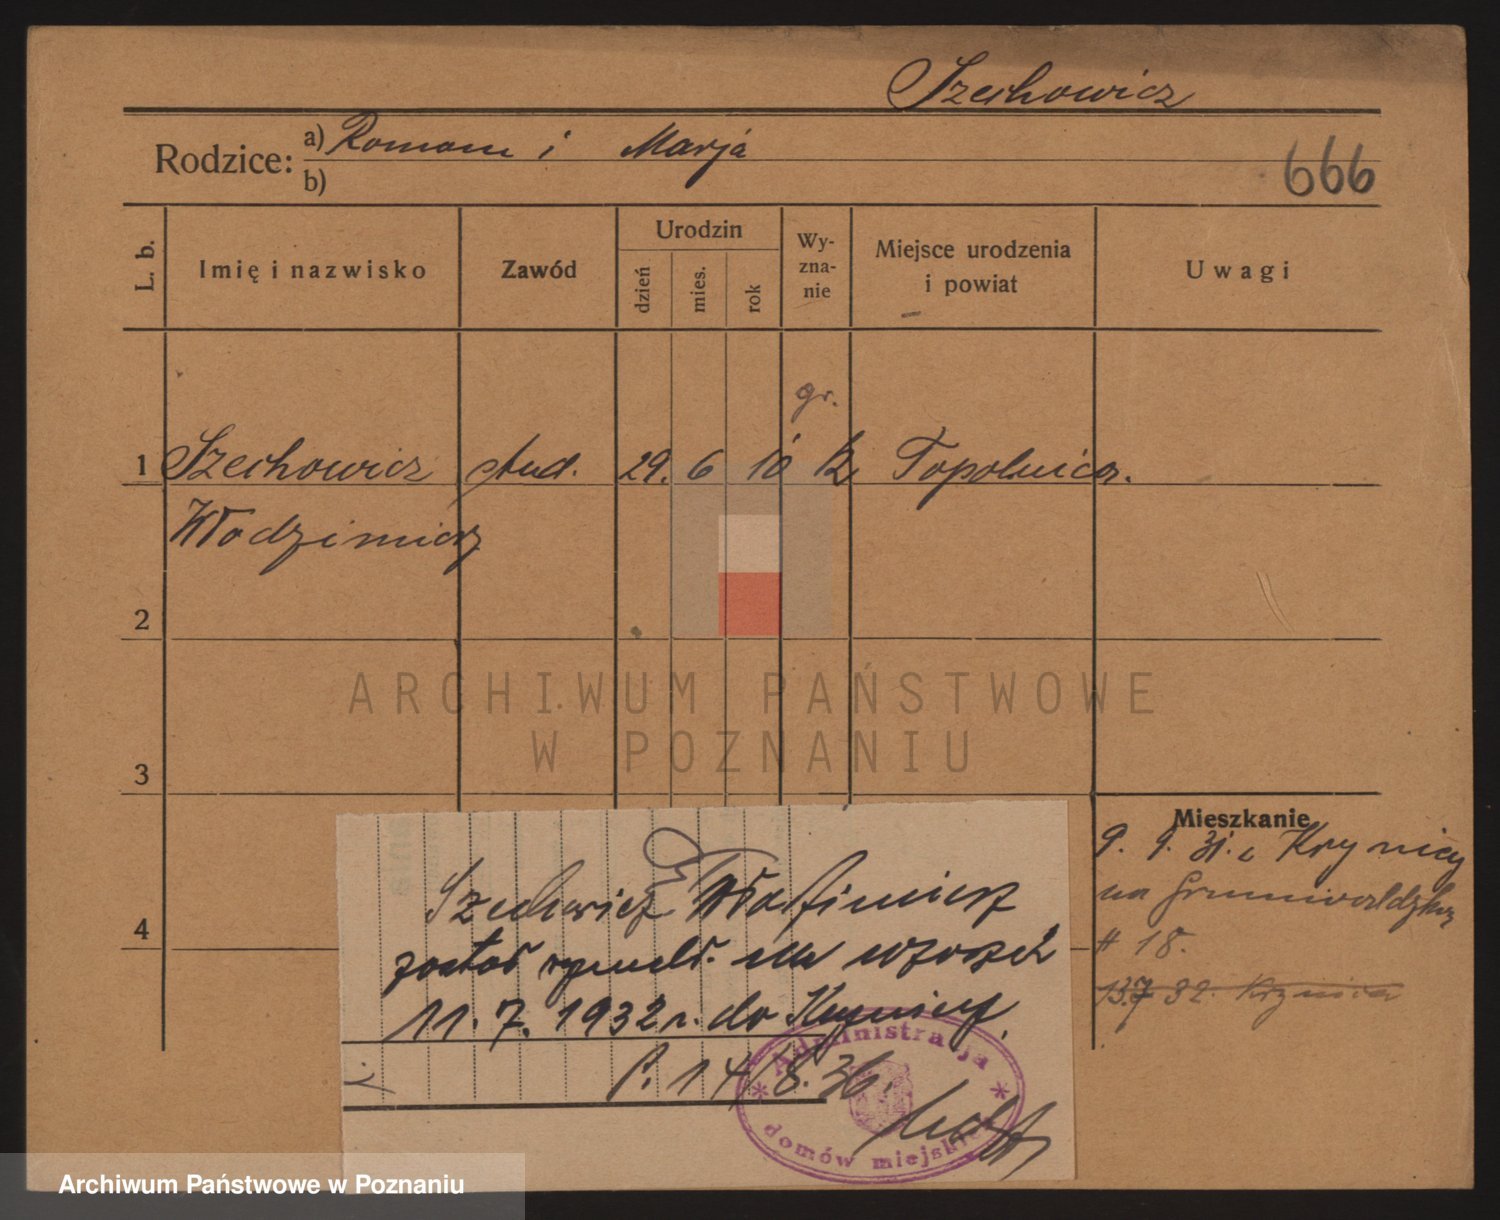 Szechowicz
Rodzice: a) Roman i Marja
b)
666
L. b.
Imię i nazwisko
Zawód
Urodzin
dzień
mies.
rok
Wy-
zna-
nie
Miejsce urodzenia
i powiat
Uwagi
gr.
1 Szechowicz stud. 29. 6 10 k Topolnica.
Włodzimierz
2
ARCHIWUM PAŃSTWOWE
W POZNANIU
3
4
Mieszkanie
9. 9. 31. z Krynicy
na Grunwaldzką
# 18.
13.7 32. Krynica
Szechowicz Włodzimierz
został wymeld.
11. 7. 1932 r. do Krynicy.
P. 14/8. 36.
Administracja
domów miejskich
Archiwum Państwowe w Poznaniu